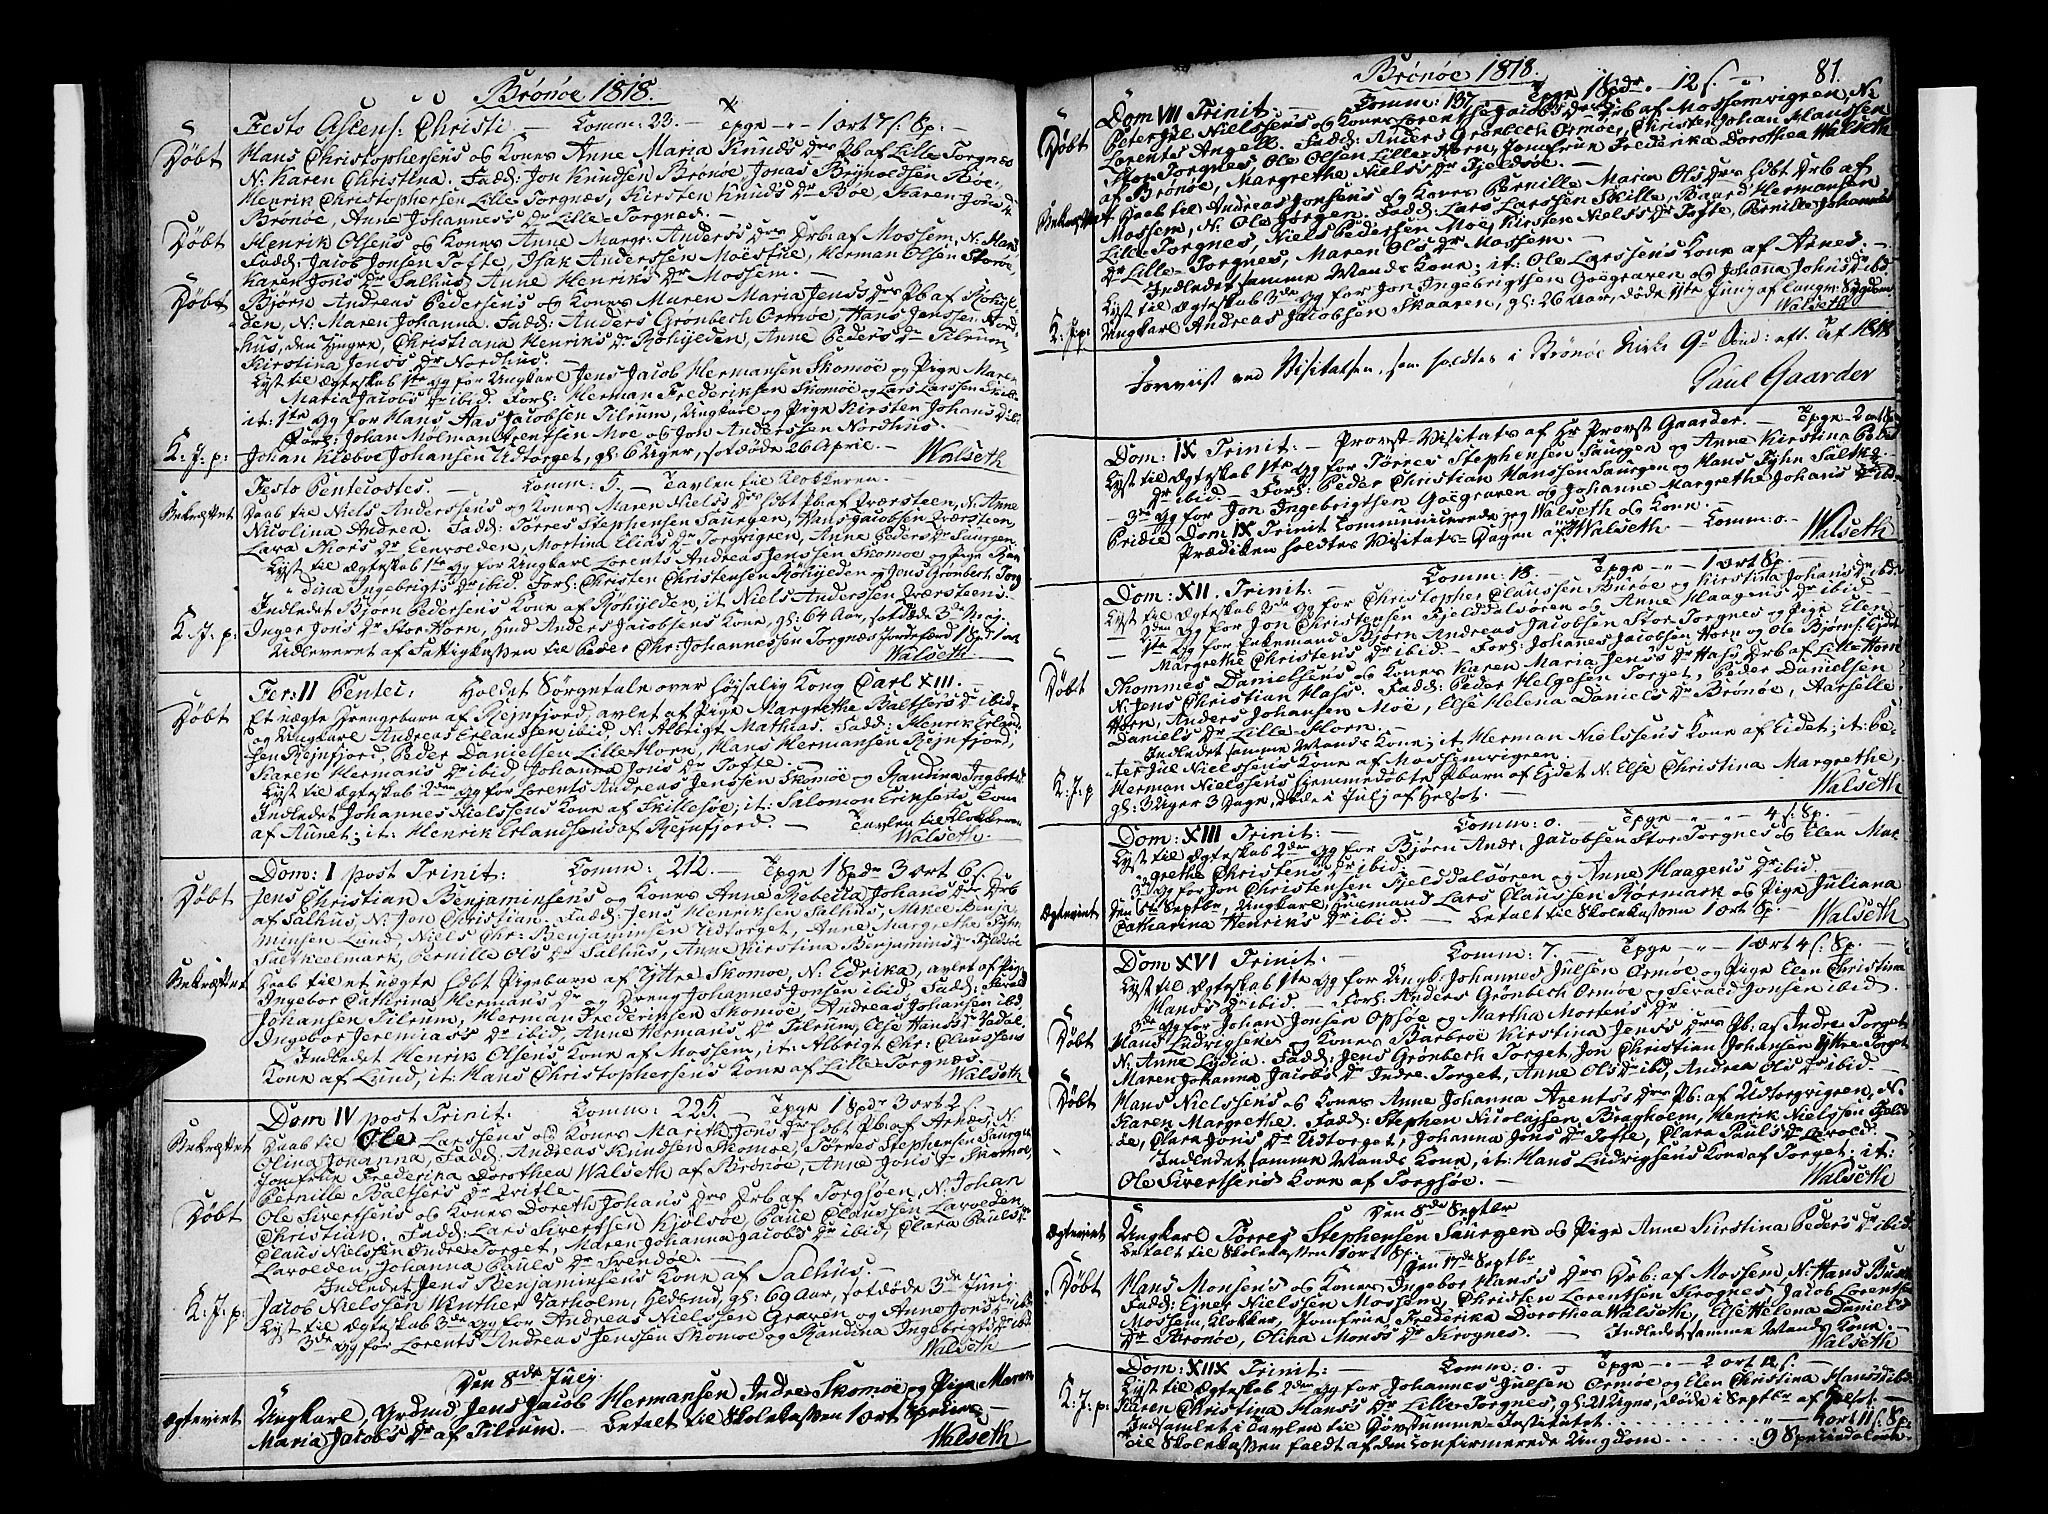 Brönöe 1818.
Festo Ascens: Christi — Comm: 23. — Tpge - „ - 1 ort 7 s: Sp: —
Døbt Hans Christophersens og Kones Anne Maria Knuds Drs Pb af Lille Torgnes
N: Karen Christina. Fadd: Jon Knudsen Brönöe, Jonas Brynoldsen Böe
Henrik Christophersen Lille Torgnæs, Kirsten Knuds Dr Böe, Karen Jons Dr
Brönöe, Anne Johannes's Dr Lille-Torgnes. —
Døbt Henrik Olsens og Kones Anne Margr: Anders's Drs Drb: af Mossem, N: Hans
Fadd: Jacob Jonsen Tofte, Isak Anderssen Moestue, Herman Olsen Storöe,
Karen Jons Dr Salhus, Anne Henriks Dr Mossem. —
Døbt Björn Andreas Pedersens og Kones Maren Maria Jens's Drs Pb af Röhyl-
den, N: Maren Johanna. Fadd: Anders Grönbech Ormöe, Hans Jenssen Nord-
hus, den Yngre, Christiana Henriks Dr Röhylden, Anne Peders Dr Tilrum
Kirstina Jens's Dr Nordhus.
Lyst til Ægteskab 1ste Gg for Ungkarl Jens Jacob Hermansen Skomöe og Pige Maren
Maria Jacobs Dr ibid. Forl: Herman Frederiksen Skomöe og Lars Larssen
it: 1ste Gg for Hans Aas Jacobsen Tilrum, Ungkarl og Pige Kirsten Johans Dr ibi
Forl: Johan Mölman Arentsen Moe og Jon Anderssen Nordhus. —
K: J: p: Johan Klæboe Johansen Udtorget, gl: 6 Uger, sotdøde 26 April. — Walseth
Festo Pentecostes. — Comm: 5. — Tavlen til Klokkeren. —
Bekræftet Daab til Niels Anderssens og Kones Maren Niels Drs hdbt Pb af Qværsteen, N: Anne
Nicolina Andrea. Fadd: Törres Stephensen Saurgen, Hans Jacobsen Qværsteen,
Lara Thors Dr Eenvolden, Martina Elias Dr Torgvigren, Anne Peders Dr Saurgen
Lyst til Ægteskab 1ste Gg for Ungkarl Lorents Andreas Jenssen Skomoe og Pige Ran
dina Ingebrigts Dr ibid. Forl: Christen Christensen Röhylden og Jens Grönbech Torg
Indledet Björn Pedersens Kone af Röhylden, it Niels Anderssen Qværsteens. —
K: J: p: Inger Jons Dr Stor Horn, Hmd Anders Jacobsens Kone, gl: 64 Aar, sotdöde 3de Maj.
Udleveret af Fattigkassen til Peder Chr: Johannessen Torgnæs fordefærd 1 Spd 1 ort
Walseth
Fer: II Pentec: Holdet Sørgetale over højsalig Kong Carl XIII. —
Døbt Et uægte Drengebarn af Rejnfjord, avlet af Pige Margrethe Baltsers Dr ibid.
og Ungkarl Andreas Erlandsen ibid, N: Albrigt Mathias. Fadd: Henrik Erland-
sen Rejnfjord, Peder Danielsen Lille Horn, Hans Hermansen Rejnfjord,
Karen Hermans Dr ibid, Johanna Jons Dr Tofte. —
Lyst til Ægteskab 2den Gg for Lorents Andreas Jenssen Skomöe og Randina Ingebrigts
Indledet Johannes Nielssens Kone af Skillesöe; it: Salomon Eriksens Kone
af Aunet; it: Henrik Erlandsens af Rejnfjord. — Tavlen til Klokkeren
Walseth
Dom: I post Trinit: — Comm: 212. — Tpge 1 Spdr 3 ort 6 s.
Døbt Jens Christian Benjaminsens og Kones Anne Rebecca Johans Drs Drb
af Salhus, N: Jon Christian. Fadd: Jens Henriksen Salhus, Mikel Benja-
minsen Lund, Niels Chr: Benjaminsen Udtorget, Anne Margrethe
Saltkeelmark, Pernille Ols Dr Salhus, Anne Kirstina Benjamins Dr Fjeldsöe
Bekræftet Daab til et uægte hdbt Pigebarn af Yttre Skomoe, N: Edrika, avlet af Pige
Ingebor Cathrina Hermans Dr og Dreng Johannes Jonsen ibid. Fadd: Sivald
Johansen Tilrum, Herman Frederiksen Skomöe, Andreas Johansen ibid,
Ingebor Jeremias's Dr ibid, Anne Hermans Dr Tilrum, Else Hans's Dr
Indledet Henrik Olsens Kone af Mossem, it: Albrigt Chr: Claussens
Kone af Lund, it: Hans Christophersens Kone af Lille-Torgnæs.
Walseth
Dom: IV post Trinit: Comm: 225. Tpge 1 Spdr 3 ort 2 s.
Bekræftet Daab til Ole Larssens og Kones Marith Jons Dr hdbt Pb af Arnæs, N.
Olina Johanna, Fadd: Andreas Knudsen Skomöe, Törres Stephensen Saurgen
Jomfrue Frederica Dorothea Walseth af Brönöe, Anne Jons Dr Skomöe,
Pernille Baltsers Dr
Døbt Ole Sivertsens og Kones Doreth Johans Drs Drb af Torgsöen, N: Johan
Christian. Fadd: Lars Sivertsen Kjölsöe, Paul Claussen Lavolden
Claus Nielssen Indre Torget, Maren Johanna Jacobs Dr ibid, Clara Pauls Dr
Lavolden, Johanna Pauls Dr
Indledet Jens Benjaminsens Kone af Salhus. —
K: J: p: Jacob Nielssen Winther Varholm, Hdmd, gl: 69 Aar, sotdöde 3de Junj.
Lyst til Ægteskab 3de Gg for Andreas Nielssen Graven og Anne Jons Dr ibid
3de Gg for Lorents Andreas Jenssen Skomoe og Randina Ingebrigts Dr ibid
Walseth
Den 8de Julj.
Ægteviet Ungkarl, Jens Jacob Hermansen Indre Skomöe og Pige Maren
Maria Jacobs Dr af Tilrum. — Betalt til Skolekassen 1 ort Specie —
Walseth
Brönöe 1818. 81.
Dom VII Trinit: — Comm: 137. Tpge 1 Spdr - 12 s. —
Døbt Peter Jul Nielssens og Kones Lorentse Jacobs Drs Drb af Mossemvigren, N.
Lorents Angell. Fadd: Anders Grönbech Ormöe, Christen Johan Hanssen
Torgnes, Ole Olsen Lille Horn, Jomfrue Frederika Dorothea Walseth
af Brönöe, Margrethe Niels Dr Fjeldsöe. —
Bekræftet Daab til Andreas Jonsens og Kones Pernille Maria Ols Drs hdbt Drb af
Mossem, N: Ole Jørgen. Fadd: Lars Larssen Skille, Baard Hermansen
Lille-Torgnes, Niels Pedersen Moe, Kirsten Niels Dr Tofte, Pernille Johannes
Dr Lille-Torgnes, Maren Ols Dr Mossem. —
Indledet samme Mands Kone; it: Ole Larssens Kone af Arnes. —
Lyst til Ægteskab 3de Gg for Jon Ingebrigtsen Goegraven og Johanna Johs Dr ibd.
K: J: p: Ungkarl Andreas Jacobsen Skaaren, gl: 26 Aar, döde 1ste Junj af langv: Sygdom
Walseth
Foreviist ved Visitatsen, som holdtes i Brönöe Kirke 9de Sönd: eft. Tref 1818
Paul Gaarder
Dom: IX Trinit: — Provst-Visitats af Hr Provst Gaarder. — Tpge - 2 ort 8
Lyst til Ægteskab 1ste Gg for Törres Stephensen Saurgen og Anne Kirstina Peders
Dr ibid. — Forl: Peder Christian Hanssen Saurgen og Hans
— 3de Gg for Jon Ingebrigtsen Goegraven og Johanne Margrethe Johans Dr ibid.
Pridie Dom IX Trinit Communicerede jeg Walseth og Kone.
Prædiken holdtes Visitats-Dagen af Walseth. — Comm: 0. — Walseth
Dom: XII. Trinit: — Comm: 18 — Tpge - „ - 1 ort 8 p.
Lyst til Ægteskab 3de Gg for Christopher Claussen Buröe og Kirstina Johans Dr ibd.
— 2den Gg for Jon Christensen Fjelddalsören og Anne Haagens Dr ibid —
— 1ste Gg for Enkemand Björn Andreas Jacobsen Stor Torgnes og Pige Elen
Margrethe Christens Dr ibid. — Forl: Johanes Jacobsen Horn og Ole Björns: Eidet
Døbt Thommes Danielsens og Kones Karen Maria Jens's Dr Hass Drb af Lille Horn
N: Jens Christian Hass. Fadd: Peder Helgesen Torget, Peder Danielsen
Horn, Anders Johansen Moe, Else Helena Daniels Dr Brönöe, Aarselle
Daniels Dr Lille-Horn. —
Indledet samme Mands Kone; it Herman Nielssens Kone af Eidet; it: Pe-
ter Jul Nielssens Kone af Mossemvigren.
K: J: p Herman Nielssens hjemmedøbte Pbarn af Ejdet N. Else Christina Margrethe,
gl: 3 Uger 3 Dage, döde i Julj af Helsot. — Walseth
Dom: XIII Trinit: — Comm: 0. — Tpge - „ - „ - 4 s: Sp. —
Lyst til Ægteskab 2den Gg for Björn Andr: Jacobsen Stor Torgnes og Elen Mar-
grethe Christens Dr ibid. —
3de Gg for Jon Christensen Fjelddalsören og Anne Haagens Dr ibid.
Ægteviet Den 6te Septbr, Ungkarl, Husmand Lars Claussen Rörmark og Pige Juliana
Catharina Henriks Dr ibid. — Betalt til Skolekassen 1 ort Sp: — Walseth
Dom XVI Trinit: — Comm: 7. — Tpge - „ - 1 ort 4 s: Sp. —
Lyst til Ægteskab 1ste Gg for Ungk: Johannes Julsen Ormöe og Pige Elen Christina
Hans's Dr ibid. — Forl: Anders Grönbech Ormöe og Sivald Jonsen ibid.
3de Gg for Johan Jonsen Opsöe og Martha Mortens Dr —
Døbt Hans Ludvigsens og Kones Barbroe Kirstina Jens's Drs Pb: af Indre Torget
N: Anne Lydia. Fadd: Jens Grönbech Torget, Jon Christian Johansen Yttre Torget
Maren Johanna Jacobs Dr Indre-Torget, Anne Ols Dr ibd, Andrea Ols Dr ibid. —
Døbt Hans Nielssens og Kones Anne Johanna Arents's Drs Pb: af Udtorgvigren, N.
Karen Margrethe. Fadd: Stephen Nicolajsen Bragholm, Henrik Nielssen Fjeld
de, Clara Jons Dr Udtorget, Johanna Jons Dr Tofte, Clara Pauls Dr Lavold.
Indledet samme Mands Kone, it: Hans Ludvigsens Kone af Torget: it:
Ole Sivertsens Kone af Torgsöe. — Walseth
Den 8de Septbr
Ægteviet Ungkarl Törres Stephensen Saurgen og Pige Anne Kirstina Peders Dr ibid.
Betalt til Skolekassen 1 ort Sp: —
Den 17de Septbr
Døbt Hans Monsens og Kones Ingebor Hans's Drs Drb: af Mossem, N: Hans
Fadd: Ejner Nielssen Mossem, Christen Lorentsen Krognes, Jacob Lorentsen
Mossem, Klokker, Jomfrue Frederika Dorothea Walseth, Else Helena Daniels
Dr Brönöe, Olina Mons's Dr Krognes. — Indledet samme Mands Kone. —
Walseth
Dom: XIIX Trinit: — Comm: 0. — Tpge - „ - 2 ort 12 s. —
Lyst til Ægteskab 2den Gg for Johannes Julsen Ormöe og Elen Christina Hans's Dr ibd.
K: J: p: Karen Christina Hans's Dr Lille-Torgnes, gl: 21 Uger, döde i Septbr af Helsot. —
Indsamlet i Tavlen til Døvstumme-Institutet . . . . . „ — 4 ort 11 s: Sp.
Til Skolekassen faldt af den confirmerede Ungdom . . . . . 9 Speciedalere.